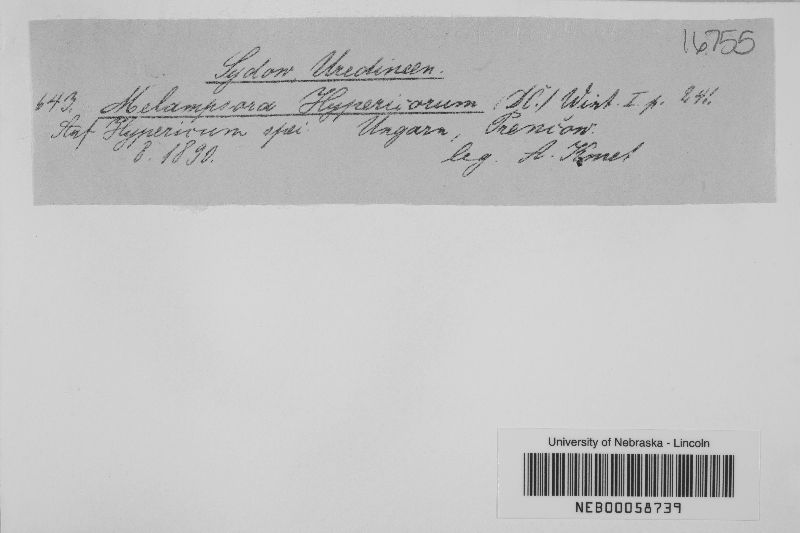 16755
Sydow, Uredineen.
643. Melampsora Hypericorum (DC.) Wint. I p. 241.
Auf Hypericum spei Ungarn, Prenčow.
8. 1890. leg. A. Kmet
University of Nebraska - Lincoln
NEB00058739